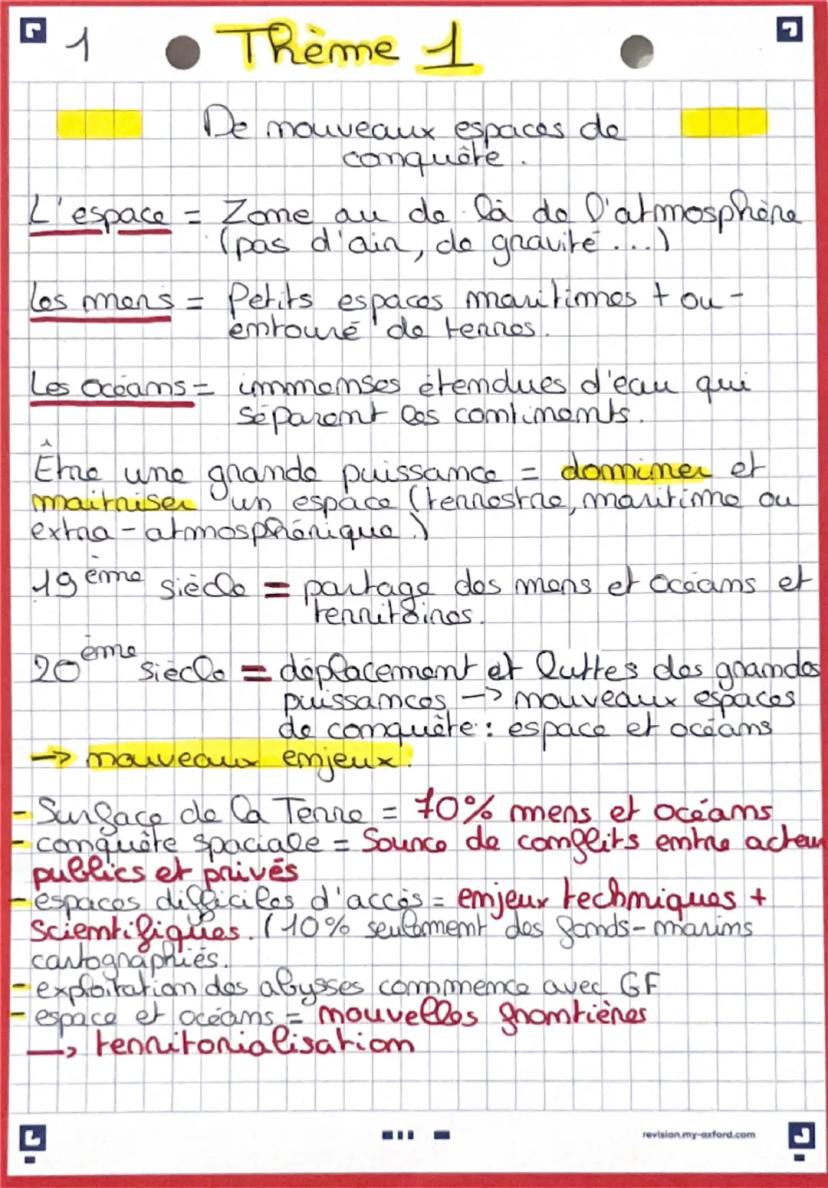 1 Thème 1
De nouveaux espaces de
conquête.
L'espace = Zone au de là de l'atmosphère
(pas d'air, de gravité...)
Les mers = Petits espaces maritimes + ou -
entouré de terres.
Les océans = immenses étendues d'eau qui
séparent les continents.
Être une grande puissance = dominer et
maitriser un espace (terrestre, maritime ou
extra-atmosphérique.)
19ème siècle = partage des mers et océans et
territoires.
20ème siècle = déplacement et luttes des grandes
puissances -> nouveaux espaces
de conquête : espace et océans
-> nouveaux enjeux.
- Surface de la Terre = 70% mers et océans
- conquête spaciale = Source de conflits entre acteur
publics et privés
- espaces difficiles d'accès = enjeux techniques +
scientifiques. (10% seulement des fonds-marins
cartographiés.
- exploitation des abysses commence avec GF
- espace et océans = nouvelles frontières
-> territorialisation
revision.my-oxford.com